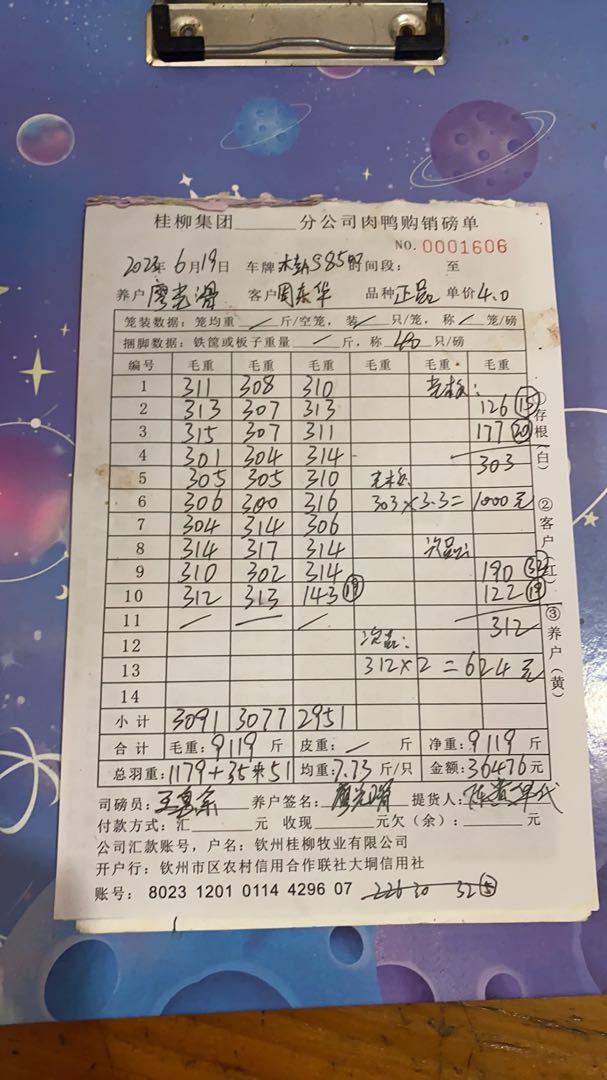 桂柳集团______分公司肉鸭购销磅单
NO. 0001606
2023年6月19日 车牌 S85 时间段: 至
养户 廖光滑 客户 周东华 品种 正品 单价 4.0
笼装数据: 笼均重 / 斤/空笼, 装 / 只/笼, 称 / 笼/磅
捆脚数据: 铁筐或板子重量 / 斤, 称 40 只/磅
编号 毛重 毛重 毛重 毛重 毛重 毛重
1 311 308 310
2 313 307 313 126 ⑮
3 315 307 311 177 ⑳
4 301 304 314 303
5 305 305 310
6 306 300 316 303×3.3= 1000元
7 304 314 306
8 314 317 314 次品:
9 310 302 314 190 (32)
10 312 313 143 ⑲ 122 ⑲
11 / / / 312
12 次品:
13 312×2=624元
14
小计 3091 3077 2951
合计 毛重: 9119 斤 皮重: / 斤 净重: 9119 斤
总羽重: 1179+35+51 均重: 7.73 斤/只 金额: 36476元
司磅员: 养户签名: 提货人:
付款方式: 汇______元 收现______元欠(余): ______元
公司汇款账号, 户名: 钦州桂柳牧业有限公司
开户行: 钦州市区农村信用合作联社大垌信用社
账号: 8023 1201 0114 4296 07
①存根(白) ②客户(红) ③养户(黄)